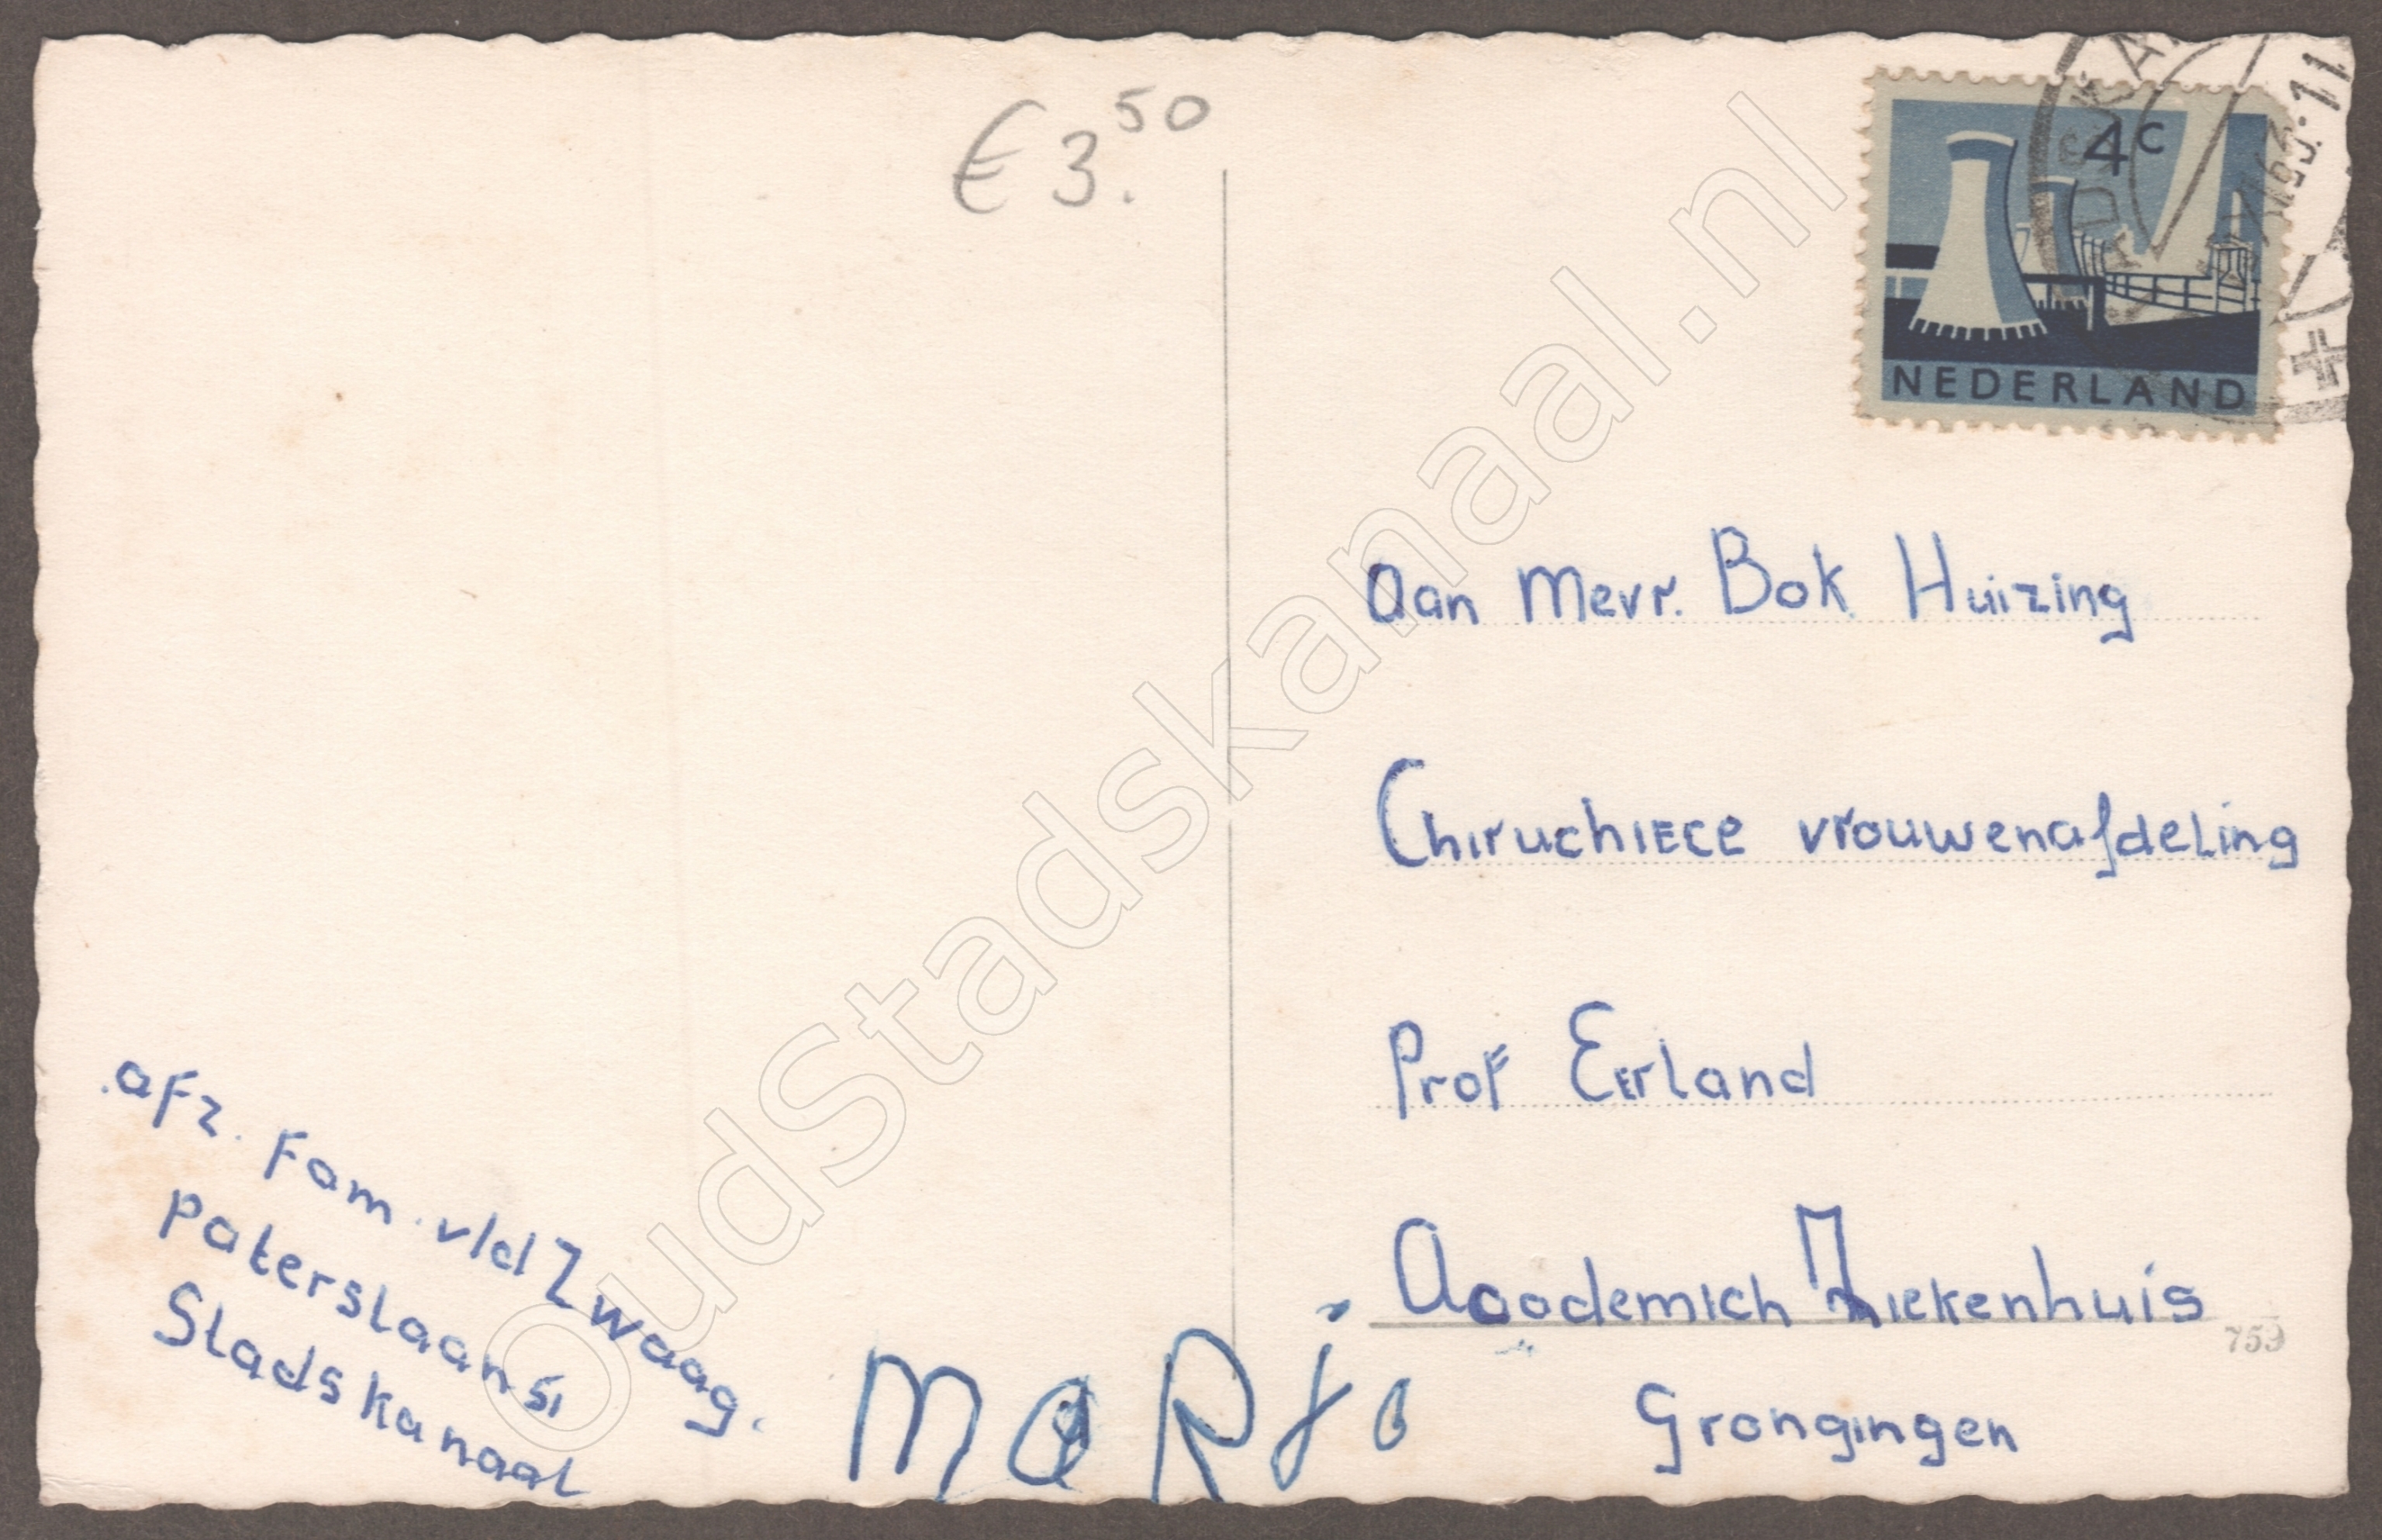 € 3.50
4c
NEDERLAND
Aan Mevr. Bok Huizing
Chiruchiece vrouwenafdeling
Prof Eerland
Acodemich Ziekenhuis
759
Grongingen
afz. Fam. v/d Zwaag.
Paterslaan 51
Stadskanaal
MaRjo
OudStadskanaal.nl